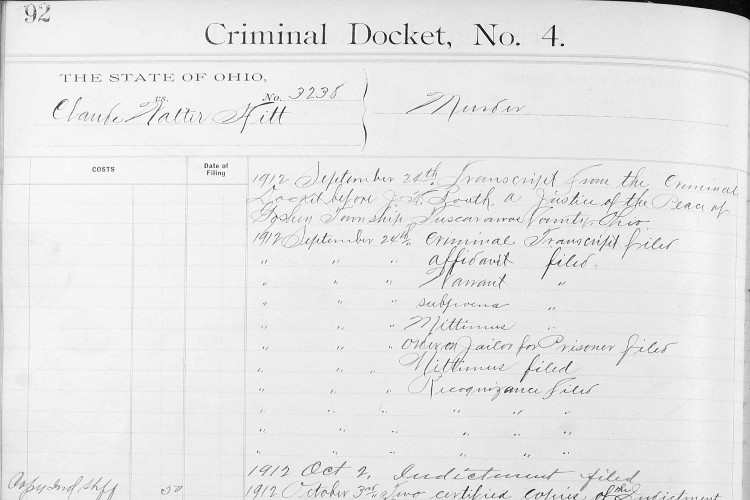 92
Criminal Docket, No. 4.
THE STATE OF OHIO,
vs.
No. 3238
Claude Walter Hitt
Murder
COSTS
Date of
Filing
1912 September 24th, Transcript from the Criminal
Docket before J. W. Booth, a Justice of the Peace of
Goshen Township, Tuscarawas County, Ohio.
1912 September 24th, Criminal Transcript filed
" " " affidavit filed.
" " " Warrant "
" " " subpoena "
" " " Mittimus "
" " " order on Jailor for Prisoner filed
" " " Mittimus filed
" " " Recognizance filed
" " " " " "
" " " " " "
1912 Oct 2, Indictment filed
Copy Ind. Shff 50 1912 October 3rd, Two certified copies of the Indictment